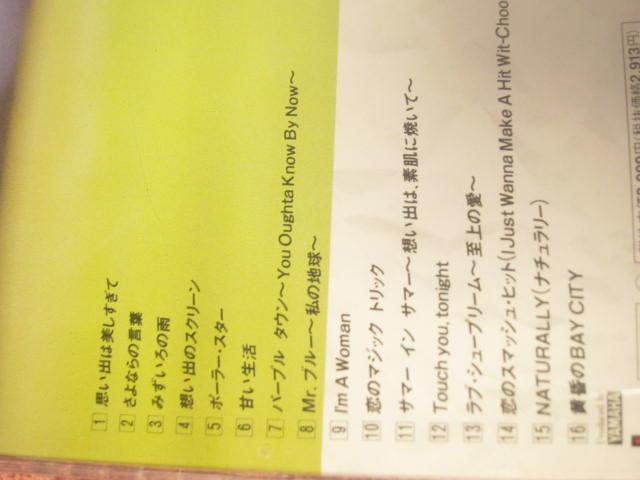 1 思い出は美しすぎて
2 さよならの言葉
3 みずいろの雨
4 想い出のスクリーン
5 ポーラー・スター
6 甘い生活
7 パープル タウン〜You Oughta Know By Now〜
8 Mr. ブルー〜私の地球〜
9 I'm A Woman
10 恋のマジック トリック
11 サマー イン サマー〜想い出は、素肌に焼いて〜
12 Touch you, tonight
13 ラブ・シュープリーム〜至上の愛〜
14 恋のスマッシュ・ヒット(I Just Wanna Make A Hit Wit-Choo
15 NATURALLY(ナチュラリー)
16 黄昏のBAY CITY
Produced by
YAMAHA
円(税抜価格2,913円)